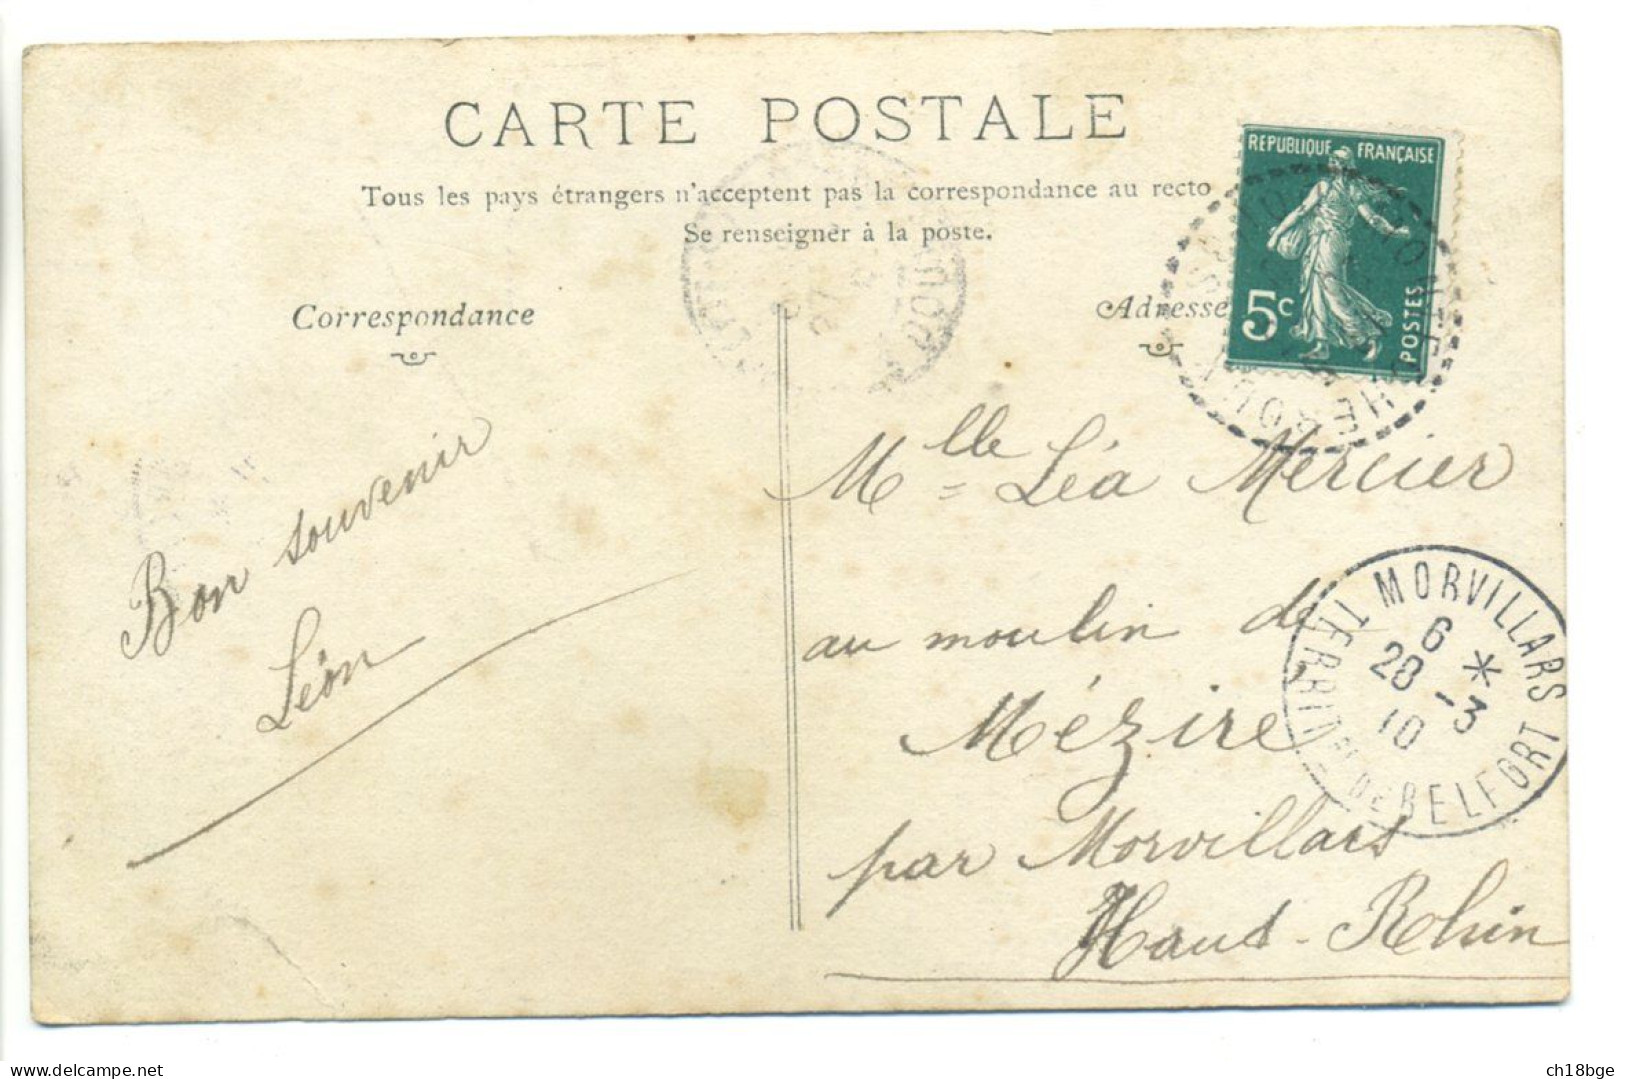 CARTE POSTALE
Tous les pays étrangers n'acceptent pas la correspondance au recto
Se renseigner à la poste.
Correspondance
Adresse
REPUBLIQUE FRANÇAISE
5c
POSTES
Bon souvenir
Léon
Mlle Léa Mercier
au moulin de
Mézire
par Morvillars
Haut-Rhin
MORVILLARS
6 *
28 -3
10
TERRIT RE DE BELFORT
ch18bge